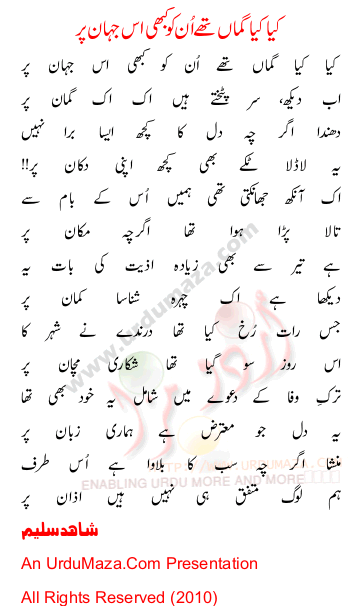 کیا کیا گماں تھے اُن کو کبھی اس جہان پر
کیا کیا گماں تھے اُن کو کبھی اس جہان پر
اب دیکھ، سر پٹختے ہیں اک اک گمان پر
دھندا اگر چہ دل کا کچھ ایسا برا نہیں
یہ لاڈلا ٹکے بھی کچھ اپنی دکان پر!!
اک آنکھ جھانکتی تھی ہمیں اُس کے بام سے
تالا پڑا ہوا تھا اگرچہ مکان پر
ہے تیر سے بھی زیادہ اذیت کی بات یہ
دیکھا ہے اک چہرہ شناسا کمان پر
جس رات رُخ کیا تھا درندے نے شہر کا
اس روز سو گیا تھا شکاری مچان پر
ترکِ وفا کے دعوے میں شامل یہ خود بھی تھا
یہ دل جو معترض ہے ہماری زبان پر
منشا اگر چہ سب کا بلاوا ہے اُس طرف
ہم لوگ متفق ہی نہیں ہیں اذان پر
شاھد سلیم
An UrduMaza.Com Presentation
All Rights Reserved (2010)
www.urdumaza.com
اردو مزا
HTTP://WWW.URDUMAZA.COM
ENABLING URDU MORE AND MORE